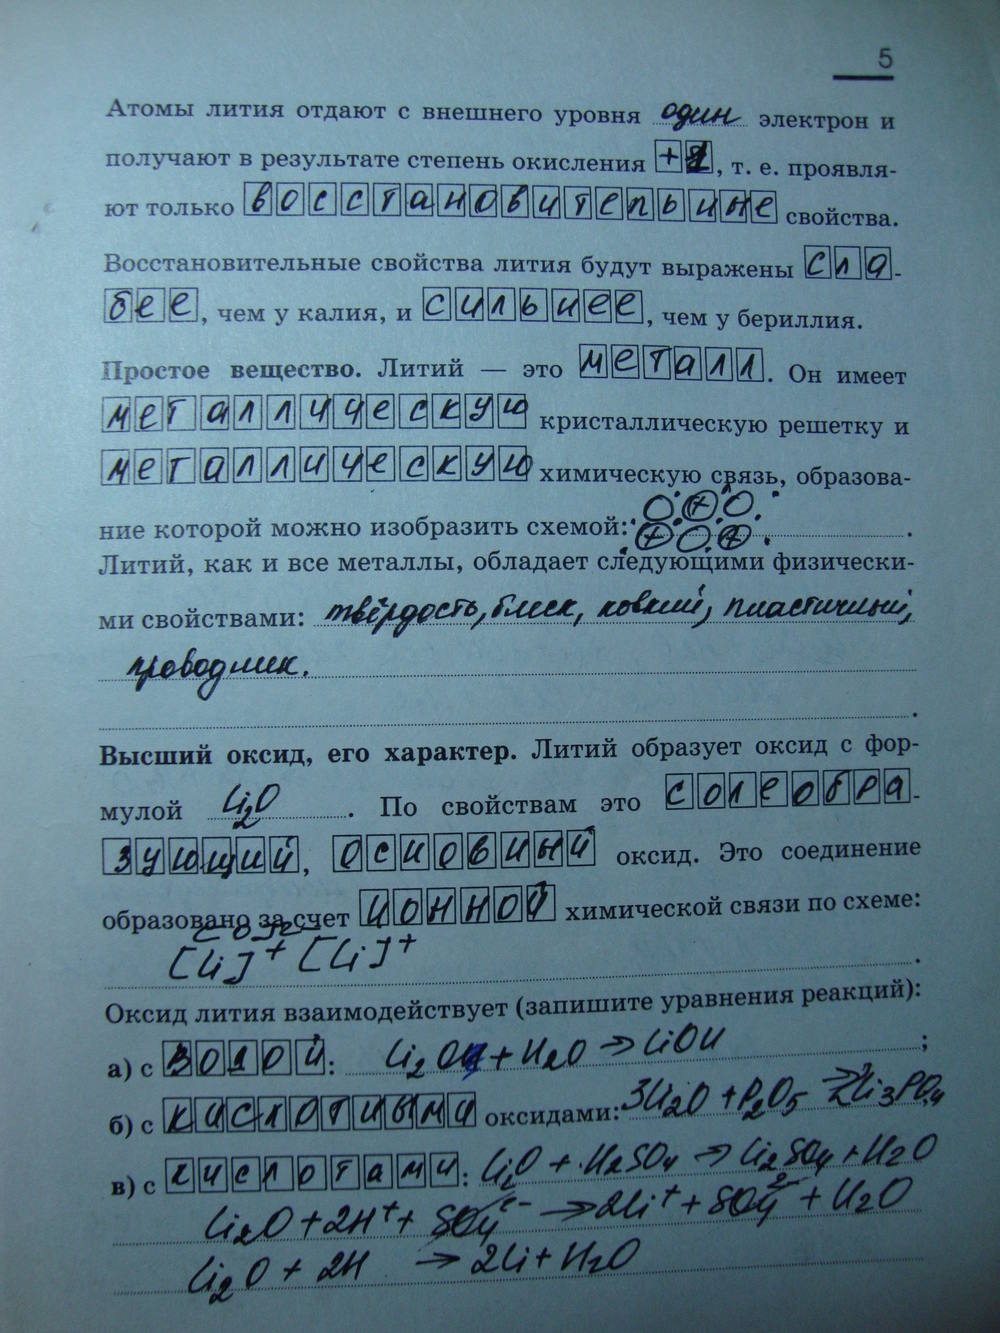 5
Атомы лития отдают с внешнего уровня один электрон и
получают в результате степень окисления +1, т. е. проявля-
ют только восстановительные свойства.
Восстановительные свойства лития будут выражены сла-
бее, чем у калия, и сильнее, чем у бериллия.
Простое вещество. Литий — это металл. Он имеет
металлическую кристаллическую решетку и
металлическую химическую связь, образова-
ние которой можно изобразить схемой:
Литий, как и все металлы, обладает следующими физически-
ми свойствами: твёрдость, блеск, ковкий, пластичный,
проводник.
Высший оксид, его характер. Литий образует оксид с фор-
мулой Li2O. По свойствам это солеобра-
зующий, основный оксид. Это соединение
образовано за счет ионной химической связи по схеме:
[Li]+ [Li]+
Оксид лития взаимодействует (запишите уравнения реакций):
а) с водой: Li2O + H2O → LiOH;
б) с кислотными оксидами: 3Li2O + P2O5 → 2Li3PO4
в) с кислотами: Li2O + H2SO4 → Li2SO4 + H2O
Li2O + 2H+ + SO4 2- → 2Li+ + SO4 2- + H2O
Li2O + 2H → 2Li + H2O